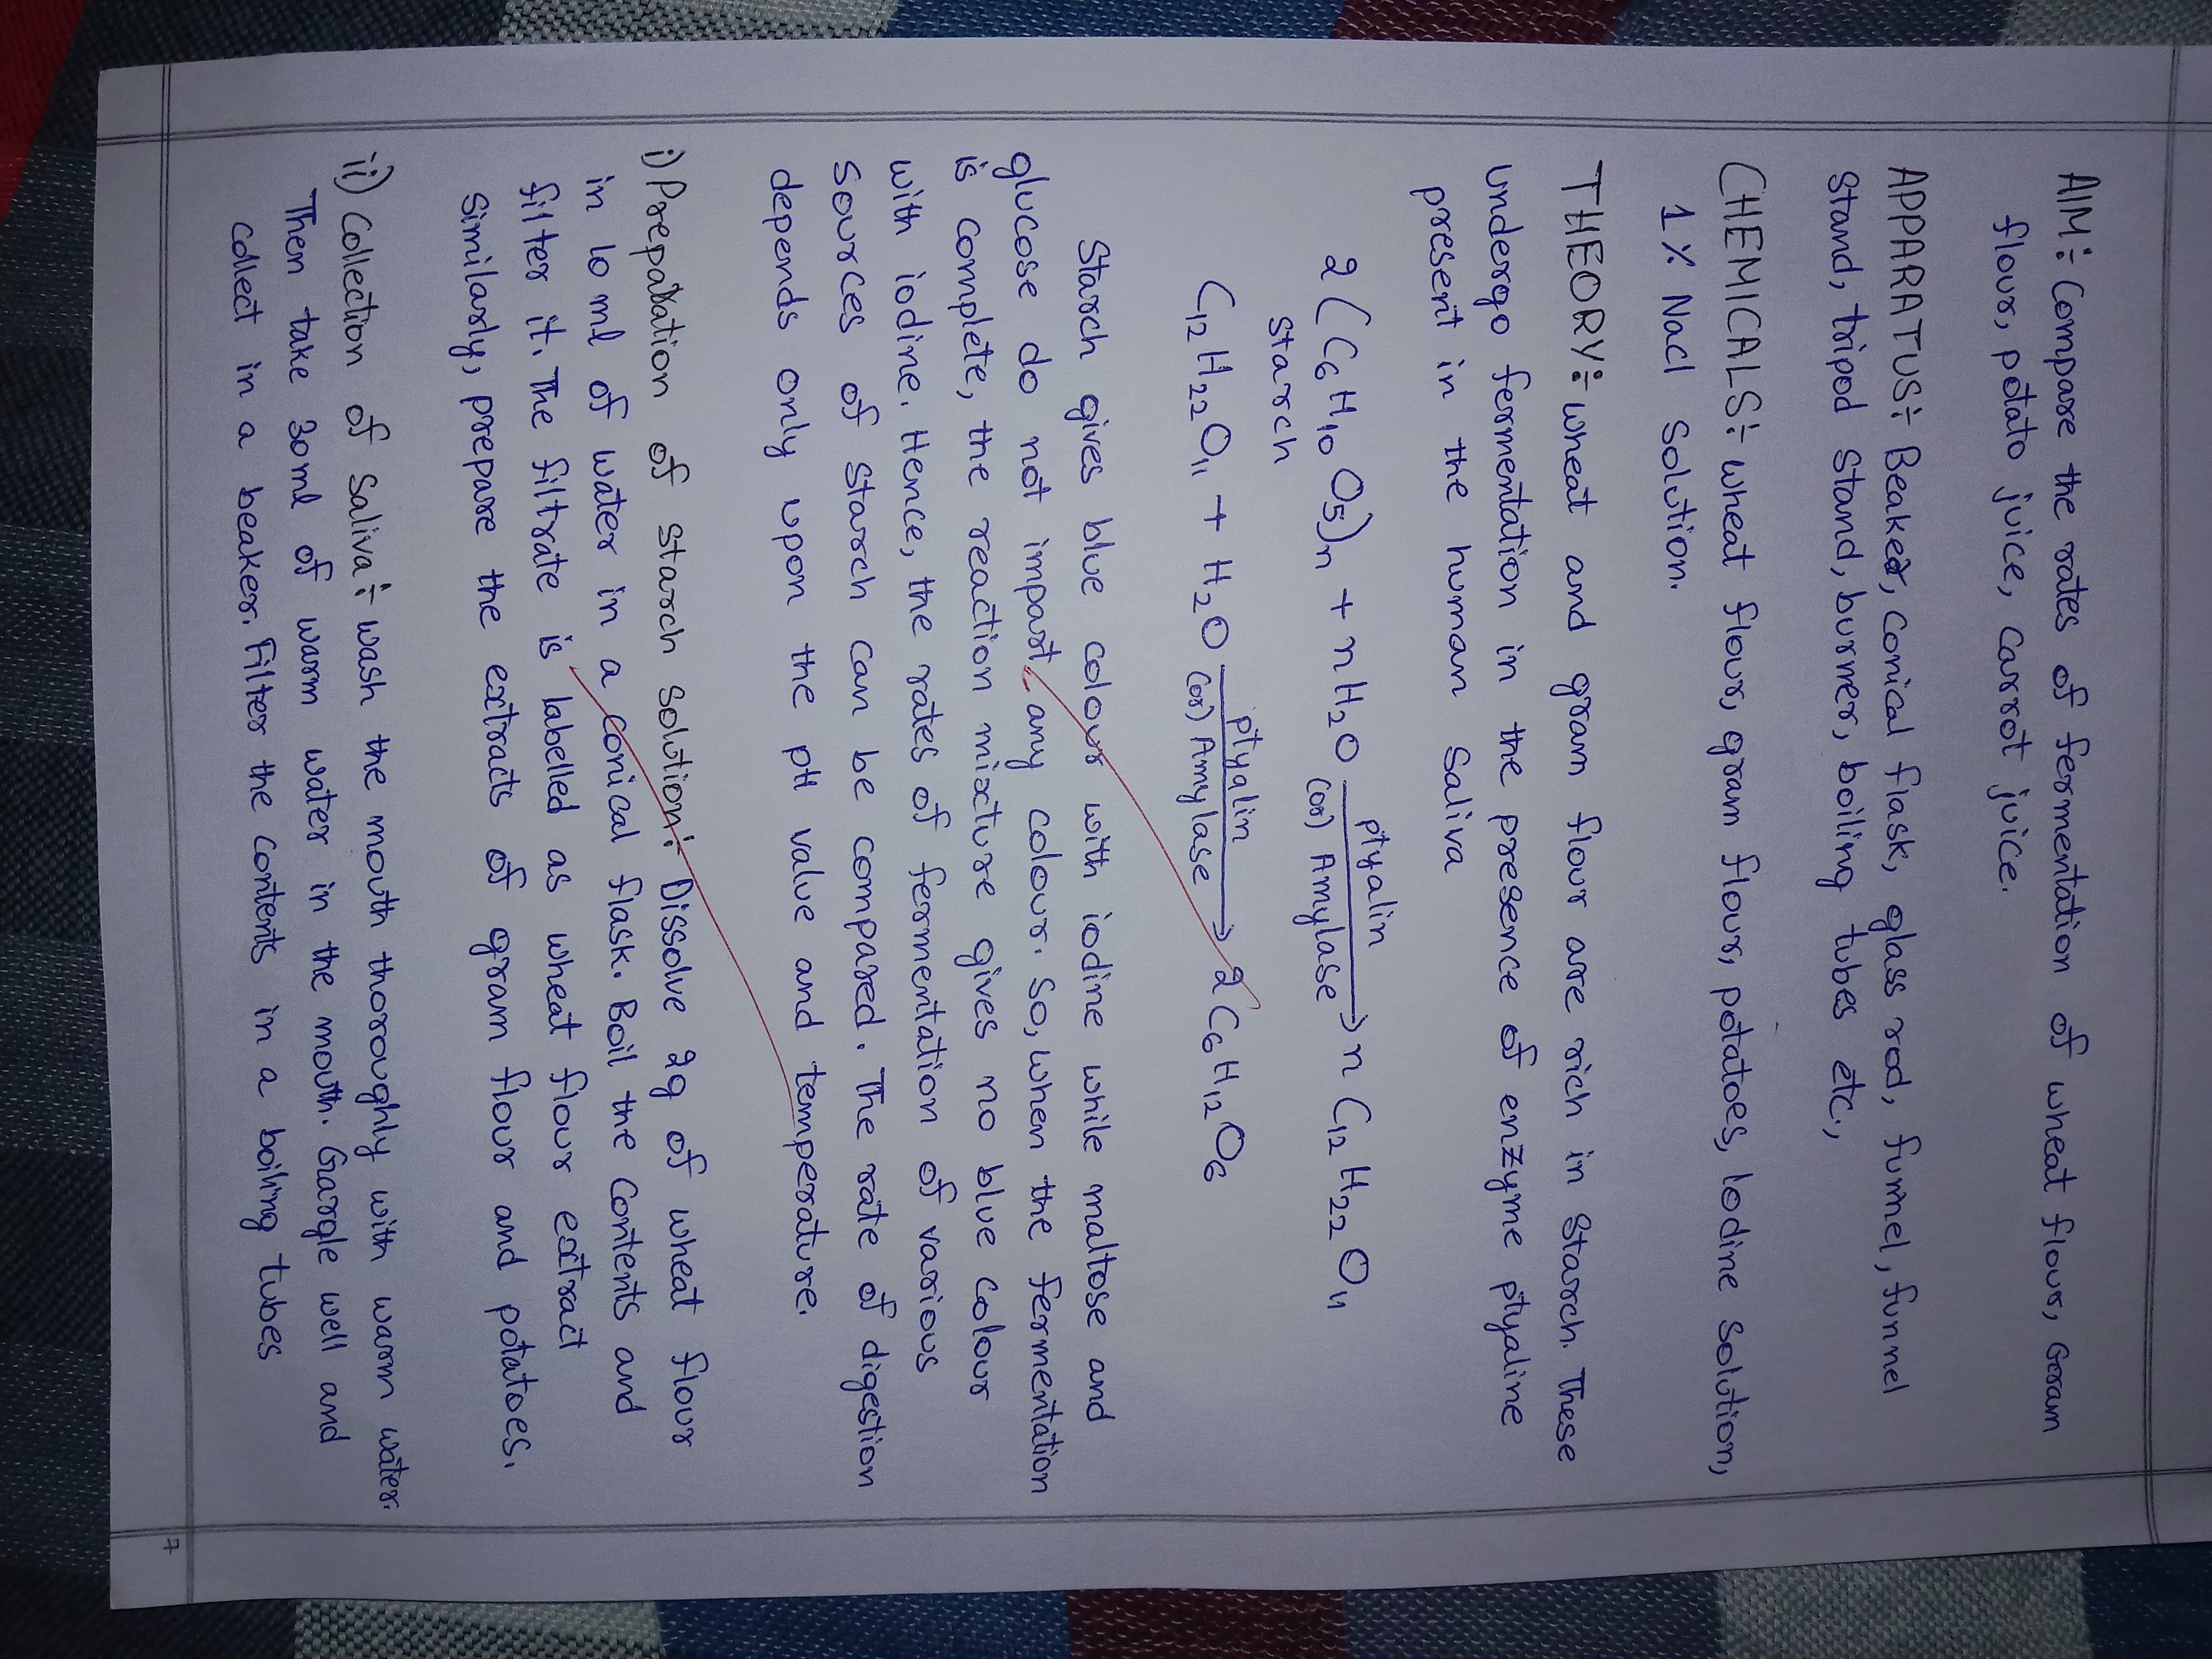 AIM:- Compare the rates of fermentation of wheat flour, Gram
flour, potato juice, Carrot juice.
APPARATUS:- Beaker, Conical flask, glass rod, funnel, funnel
Stand, tripod Stand, burner, boiling tubes etc.,
CHEMICALS:- wheat flour, gram flour, potatoes, Iodine Solution,
1% Nacl Solution.
THEORY:- wheat and gram flour are rich in Starch. These
undergo fermentation in the presence of enzyme ptyaline
present in the human Saliva
2(C₆H₁₀O₅)n + nH₂O ptyalin (or) Amylase → n C₁₂H₂₂O₁₁
Starch
C₁₂H₂₂O₁₁ + H₂O ptyalin (or) Amylase → 2C₆H₁₂O₆
Starch gives blue colour with iodine while maltose and
glucose do not impart any colour. So, when the fermentation
is complete, the reaction mixture gives no blue colour
with iodine. Hence, the rates of fermentation of various
Sources of Starch can be compared. The rate of digestion
depends only upon the pH value and temperature.
i) Preparation of Starch Solution:- Dissolve 2g of wheat flour
in 10 ml of water in a conical flask. Boil the Contents and
filter it. The filtrate is labelled as wheat flour extract
Similarly, prepare the extracts of gram flour and potatoes.
ii) Collection of Saliva:- wash the mouth thoroughly with warm water.
Then take 30ml of warm water in the mouth. Gargle well and
Collect in a beaker. Filter the Contents in a boiling tubes
7